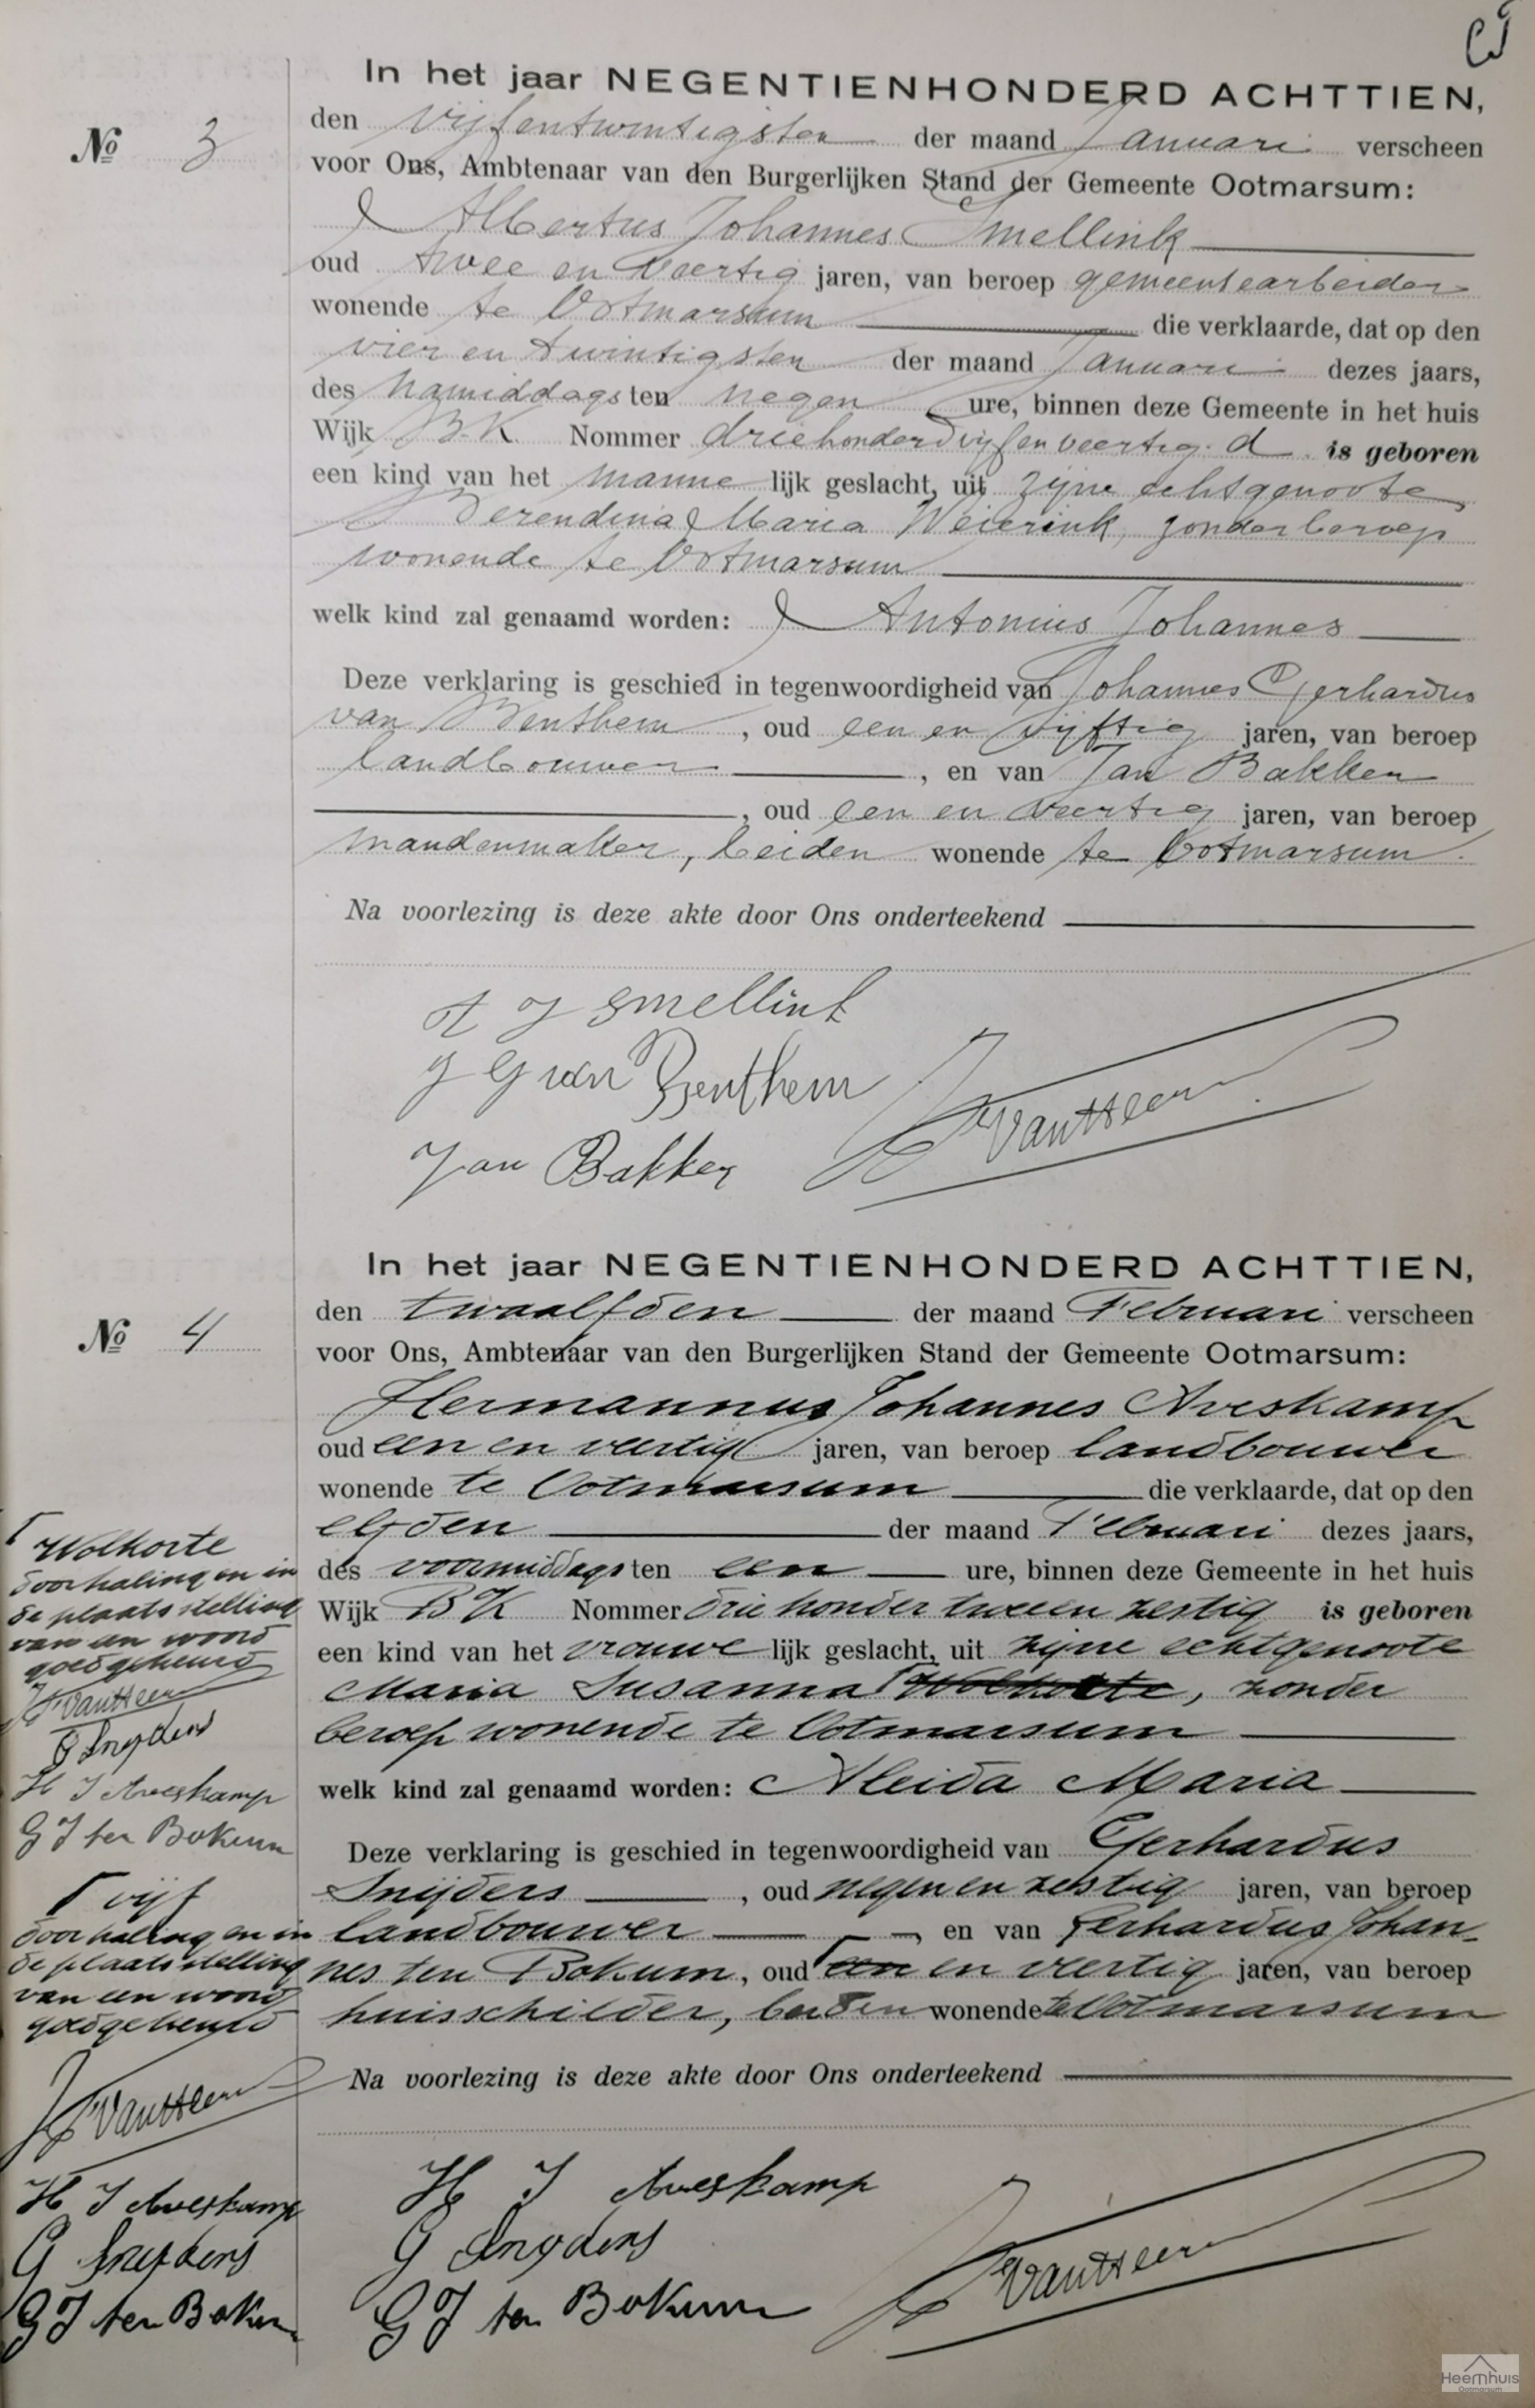 In het jaar NEGENTIENHONDERD ACHTTIEN,
№ 3
den vijfentwintigsten der maand Januari verscheen
voor Ons, Ambtenaar van den Burgerlijken Stand der Gemeente Ootmarsum:
Albertus Johannes Smellink
oud twee en veertig jaren, van beroep gemeentearbeider
wonende te Ootmarsum die verklaarde, dat op den
vier en twintigsten der maand Januari dezes jaars,
des namiddags ten negen ure, binnen deze Gemeente in het huis
Wijk B.K. Nommer driehonderd vijf en veertig d is geboren
een kind van het manne lijk geslacht, uit zijne echtgenoote
Berendina Maria Weierink, zonder beroep
wonende te Ootmarsum
welk kind zal genaamd worden: Antonius Johannes
Deze verklaring is geschied in tegenwoordigheid van Johannes Gerhardus
van Benthem, oud een en vijftig jaren, van beroep
landbouwer, en van Jan Bakker
, oud een en veertig jaren, van beroep
mandenmaker, beiden wonende te Ootmarsum.
Na voorlezing is deze akte door Ons onderteekend
A J Smellink
J G van Benthem
Jan Bakker
In het jaar NEGENTIENHONDERD ACHTTIEN,
№ 4
den twaalfden der maand Februari verscheen
voor Ons, Ambtenaar van den Burgerlijken Stand der Gemeente Ootmarsum:
Hermannus Johannes Aveskamp
oud een en veertig jaren, van beroep landbouwer
wonende te Ootmarsum die verklaarde, dat op den
elfden der maand Februari dezes jaars,
des voormiddags ten een ure, binnen deze Gemeente in het huis
Wijk BK Nommer drie honder tweeen zestig is geboren
een kind van het vrouwe lijk geslacht, uit zijne echtgenoote
Maria Susanna Wolkotte, zonder
beroep wonende te Ootmarsum
welk kind zal genaamd worden: Aleida Maria
Deze verklaring is geschied in tegenwoordigheid van Gerhardus
Snijders, oud negen en zestig jaren, van beroep
landbouwer, en van Gerhardus Johan-
nes ten Bokum, oud een en veertig jaren, van beroep
huisschilder, beiden wonende te Ootmarsum
Na voorlezing is deze akte door Ons onderteekend
H J Aveskamp
G Snyders
G J ten Bokum
Wolkorte
doorhaling en in
de plaats stelling
van een woord
goedgekeurd
G Snyders
H J Aveskamp
G J ten Bokum
vijf
doorhaling en in
de plaats stelling
van een woord
goedgekeurd
H J Aveskamp
G Snyders
G J ten Bokum
Heemhuis
Ootmarsum